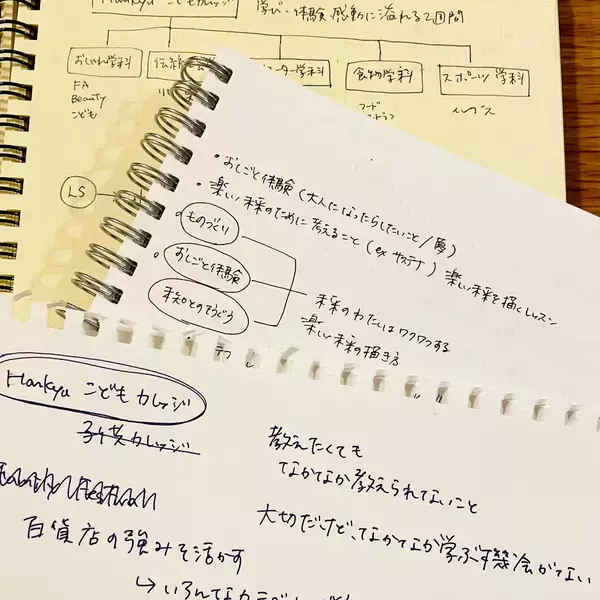 Hankyu こどもカレッジ 学び・体験 感動に溢れる2週間
おしゃれ学科
食物学科
スポーツ学科
FA
Beauty
こども
フード
LS
・おしごと体験 (大人になったらしたいこと/夢)
・楽しい未来のために考えること (ex サステナ) 楽しい未来を描くレッスン
・ものづくり
・おしごと体験
未来のわたしはワクワクする
楽しい未来の描き方
Hankyu こどもカレッジ
カレッジ
百貨店の強みを活かす
教えたくても
なかなか教えられてないこと
大切だけど、なかなか学ぶ機会がない